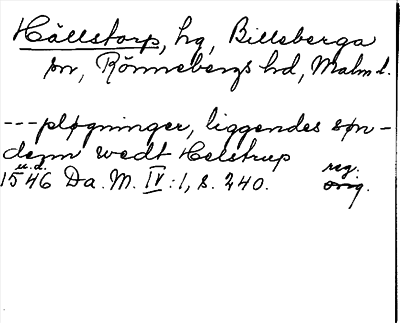 Hällstorp, hg, Billeberga
sn, Rönnebergs hd, Malm l.
---pløgninger, liggendes søn-
denn wedt Helstrup
u.d. reg.
1546 Da. M. IV:1, s. 240. orig.